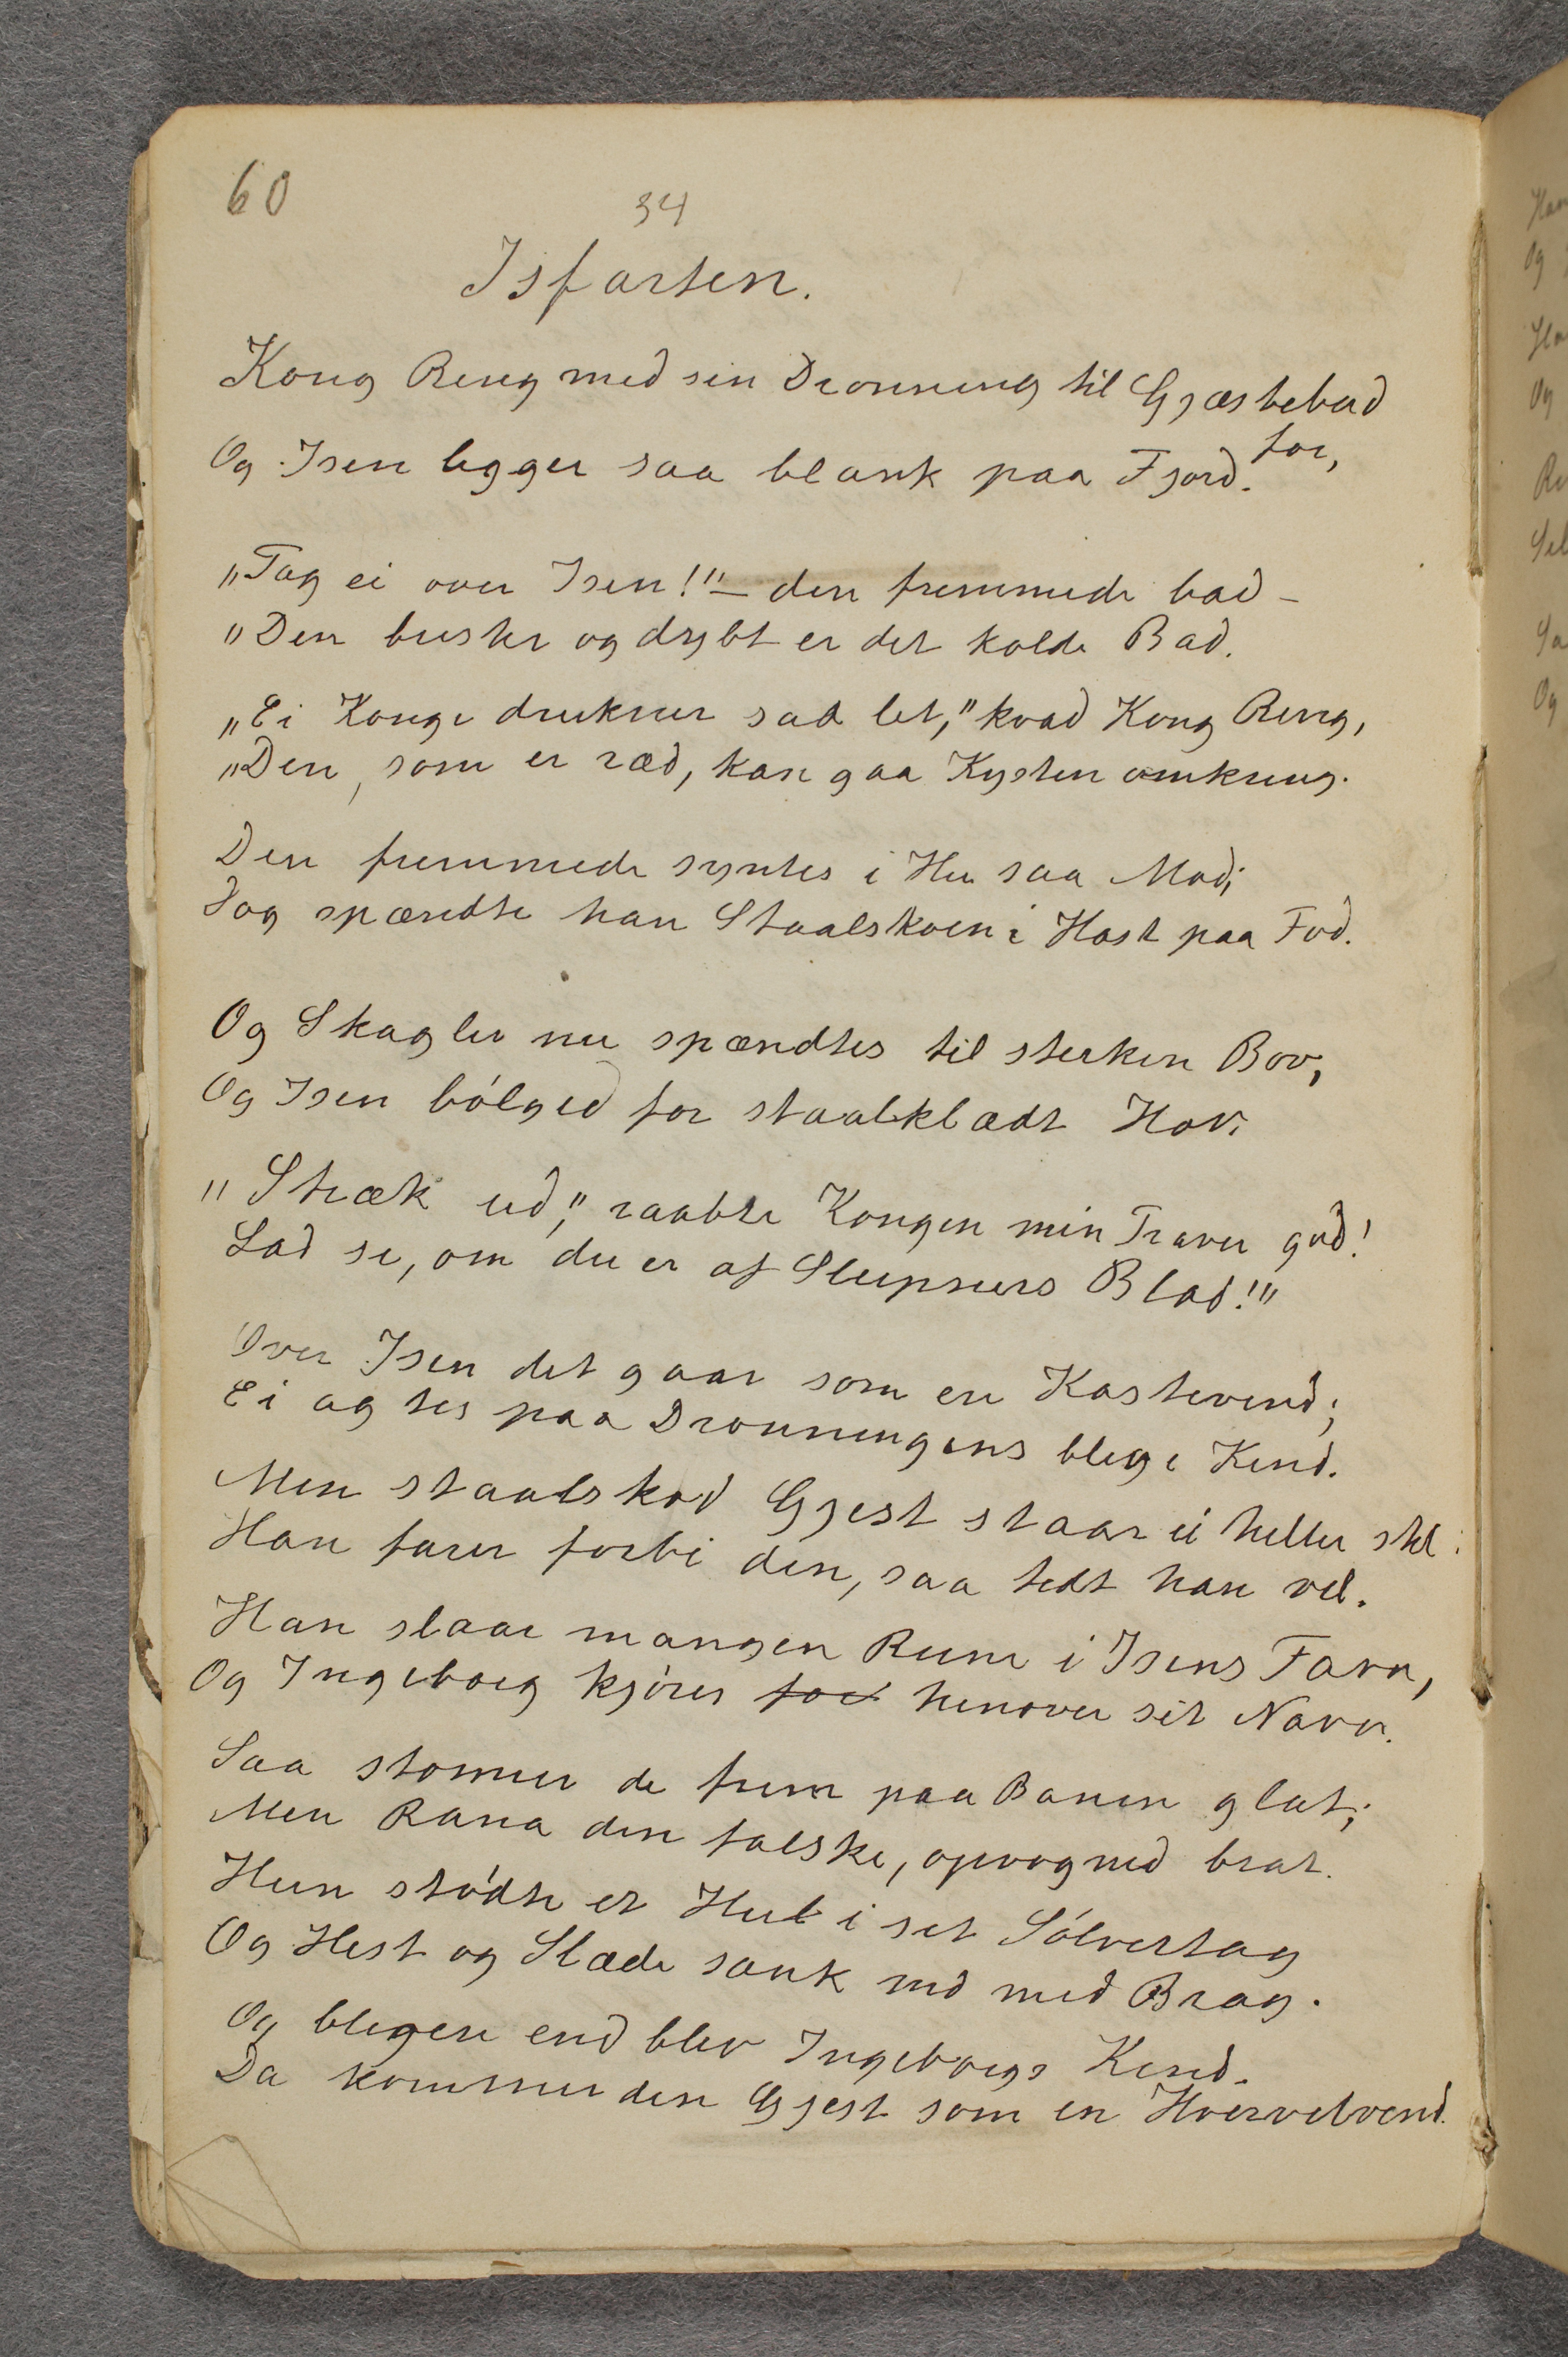 60
34
Isfarten.
Kong Ring med sin Dronning til Gjæstebud
for,
Og Isen ligger saa blank paa Fjord.
„Tag ei over Isen!" – den fremmede bad –
„Den brister og dybt er det kolde Bad.
„Ei Konge drukner saa let," kvad Kong Ring,
„Den, som er ræd, kan gaa Kysten omkring.
Den fremmede syntes i Hu saa Mod;
Dog spændte han Staalskoen i Hast paa Fod.
Og Skagler nu spændtes til sterken Bov,
Og Isen bólged for staalklædt Hov.
„Stræk ud," raabte Kongen min Traver god!
Lad se, om du er af Sleipners Blod!"
Over Isen det gaar som en Kastevind;
Ei agtes paa Dronningens blege Kind.
Men staalskod Gjest staar ei heller stil:
Han farer forbi den, saa tidt han vil.
Han slaar mangen Rune i Isens Favn,
Og Ingeborg kjóres for henover sit Navn.
Saa stormer de frem paa Banen glat;
Men Rana den falske, opvogned brat.
Hun stódte et Hul i sit Sólvertag
Og Hest og Slæde sank ned med Brag.
Og blegere end blev Ingeborgs Kind.
Da kommer den Gjest som en Hvervelvind.